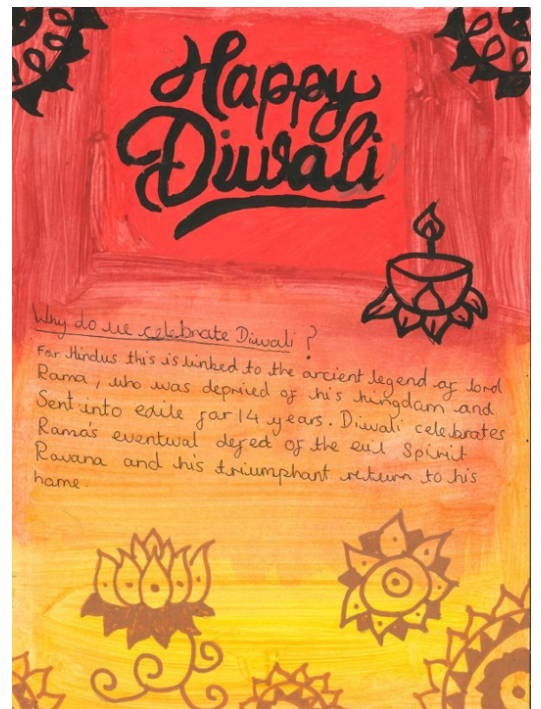 Happy
Diwali
Why do we celebrate Diwali ?
For Hindus this is linked to the arcient legend of lord
Rama, who was depried of his kingdom and
Sent into exile for 14 years. Diwali celebrates
Rama's eventwal defeat of the evil Spirit
Ravana and his triumphant return to his
home.